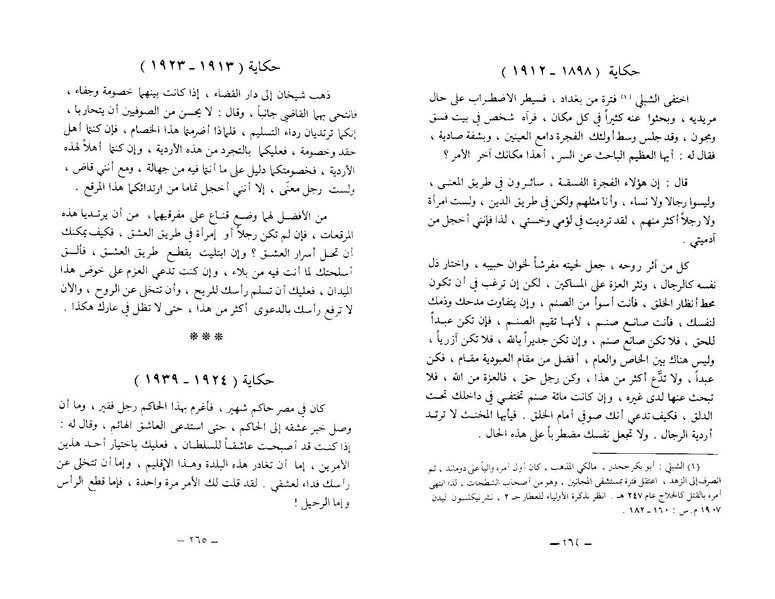 حكاية ( ١٨٩٨ - ١٩١٢ )
اختفى الشبلي (١) فترة من بغداد ، فسيطر الاضطراب على حال
مريديه ، وبحثوا عنه كثيراً في كل مكان ، فرآه شخص في بيت فسق
ومجون ، وقد جلس وسط أولئك الفجرة دامع العينين ، وبشفة صادية ،
فقال له : أيها العظيم الباحث عن السر، أهذا مكانك آخر الأمر؟
قال : إن هؤلاء الفجرة الفسقة ، سائرون في طريق المعنى ،
وليسوا رجالا ولا نساء ، وأنا مثلهم ولكن في طريق الدين ، ولست امرأة
ولا رجلاً أكثر منهم ، لقد ترديت في لؤمي وخستي ، لذا فإنني أخجل من
آدميتي .
كل من آثر روحه ، جعل لحيته مفرشاً لخوان حبيبه ، واختار ذل
نفسه كالرجال ، ونثر العزة على المساكين ، لكن إن ترغب في أن تكون
محط أنظار الخلق ، فأنت أسوأ من الصنم ، وإن يتفاوت مدحك وذمك
لنفسك ، فأنت صانع صنم ، لأنها تقيم الصنم ، فإن تكن عبداً
للحق ، فلا تكن صانع صنم ، وإن تكن جديراً بالله ، فلا تكن آزرياً ،
وليس هناك بين الخاص والعام ، أفضل من مقام العبودية مقام ، فكن
عبداً ، ولا تدَّع أكثر من هذا ، وكن رجل حق ، فالعزة من الله ، فلا
تبحث عنها لدى غيره ، وإن كانت مائة صنم تختفي في داخلك تحت
الدلق ، فكيف تدعي أنك صوفي أمام الخلق . فيأيها المخنث لا ترتد
أردية الرجال . ولا تجعل نفسك مضطرباً على هذه الحال .
(١) الشبلي : أبو بكر جحدر ، مالكي المذهب ، كان أول أمره والياً على دوماند ، ثم
انصرف إلى الزهد ، اعتقل فترة بمستشفى المجانين ، وهو من أصحاب الشطحات ، لذا انتهى
أمره بالقتل كالحلاج عام ٢٤٧ هـ . انظر تذكرة الأولياء للعطار جـ ٢ ، نشر نيكلسون ليدن
١٩٠٧ م . س : ١٦٠ - ١٨٢ .
ـ ٢٦٤ ـ
حكاية ( ١٩١٣ - ١٩٢٣ )
ذهب شيخان إلى دار القضاء ، إذا كانت بينهما خصومة وجفاء ،
فانتحى بهما القاضي جانباً ، وقال : لا يحسن من الصوفيين أن يتحاربا ،
إنكما ترتديان رداء التسليم ، فلماذا أضرمتما هذا الخصام ، فإن كنتما أهل
حقد وخصومة ، فعليكما بالتجرد من هذه الأردية ، وإن كنتما أهلاً لهذه
الأردية ، فخصومتكما دليل على ما أنتما فيه من جهالة ، ومع أنني قاض ،
ولست رجل معنّى ، إلا أنني أخجل تماما من ارتدائكما هذا المرقع .
من الأفضل لهما وضع قناع على مفرقيهما، من أن يرتديا هذه
المرقعات ، فإن لم تكن رجلاً أو إمرأة في طريق العشق ، فكيف يمكنك
أن تحل أسرار العشق ؟ وإن ابتليت بقطع طريق العشق ، فألق
أسلحتك لما أنت فيه من بلاء ، وإن كنت تدعي العزم على خوض هذا
الميدان ، فعليك أن تسلم رأسك للريح ، وأن تتخلى عن الروح ، والآن
لا ترفع رأسك بالدعوى أكثر من هذا ، حتى لا تظل في عارك هكذا .
***
حكاية ( ١٩٢٤ - ١٩٣٩ )
كان في مصر حاكم شهير ، فأغرم بهذا الحاكم رجل فقير ، وما أن
وصل خبر عشقه إلى الحاكم ، حتى استدعى العاشق الهائم ، وقال له :
إذا كنت قد أصبحت عاشقاً للسلطان ، فعليك باختيار أحد هذين
الأمرين ، إما أن تغادر هذه البلدة وهذا الإقليم ، وإما أن تتخلى عن
رأسك فداء لعشقي . لقد قلت لك الأمر مرة واحدة ، فإما قطع الرأس
وإما الرحيل !
ـ ٢٦٥ ـ